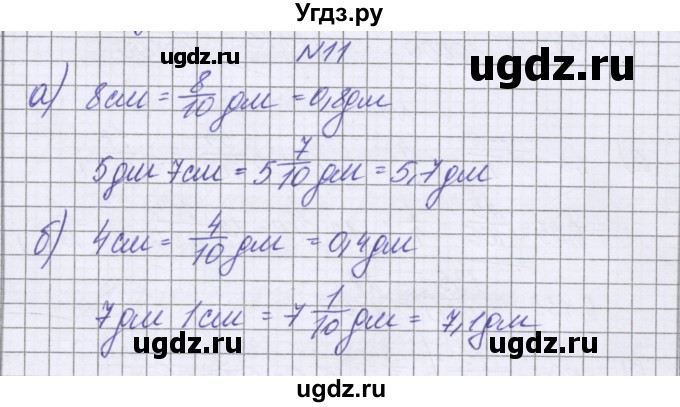 Угдз.ру
N11
ugdz.ru
ugdz.ru
а) 8см = 8/10 дм = 0,8дм
5дм 7см = 5 7/10 дм = 5,7дм
ugdz.ru
б) 4см = 4/10 дм = 0,4дм
7дм 1см = 7 1/10 дм = 7,1дм
ugdz.ru
ugdz.ru